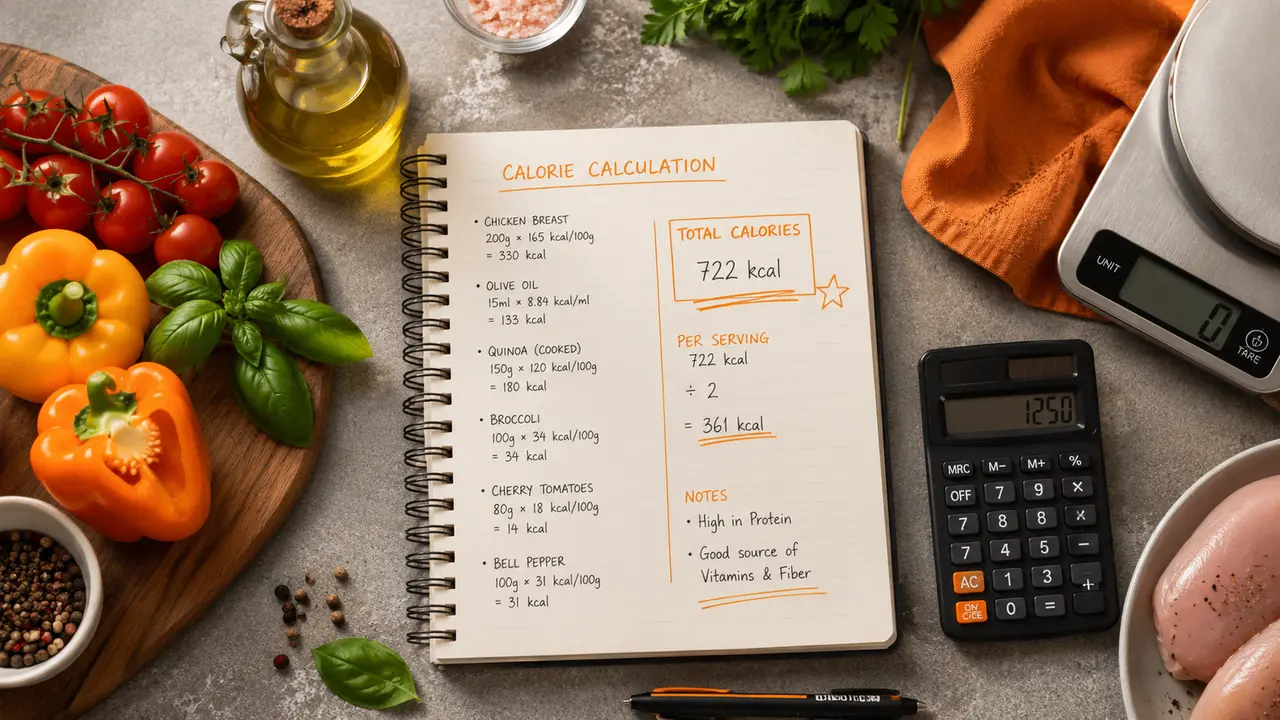 CALORIE CALCULATION
• CHICKEN BREAST
200g × 165 kcal/100g
= 330 kcal
• OLIVE OIL
15ml × 8.84 kcal/ml
= 133 kcal
• QUINOA (COOKED)
150g × 120 kcal/100g
= 180 kcal
• BROCCOLI
100g × 34 kcal/100g
= 34 kcal
• CHERRY TOMATOES
80g × 18 kcal/100g
= 14 kcal
• BELL PEPPER
100g × 31 kcal/100g
= 31 kcal
TOTAL CALORIES
722 kcal
PER SERVING
722 kcal
÷ 2
= 361 kcal
NOTES
• High in Protein
• Good source of
Vitamins & Fiber
UNIT
0
TARE
1250
MRC M- M+ %
OFF 7 9 ×
7 8 8
7 4 5 −
AC 1 3 +
0 =